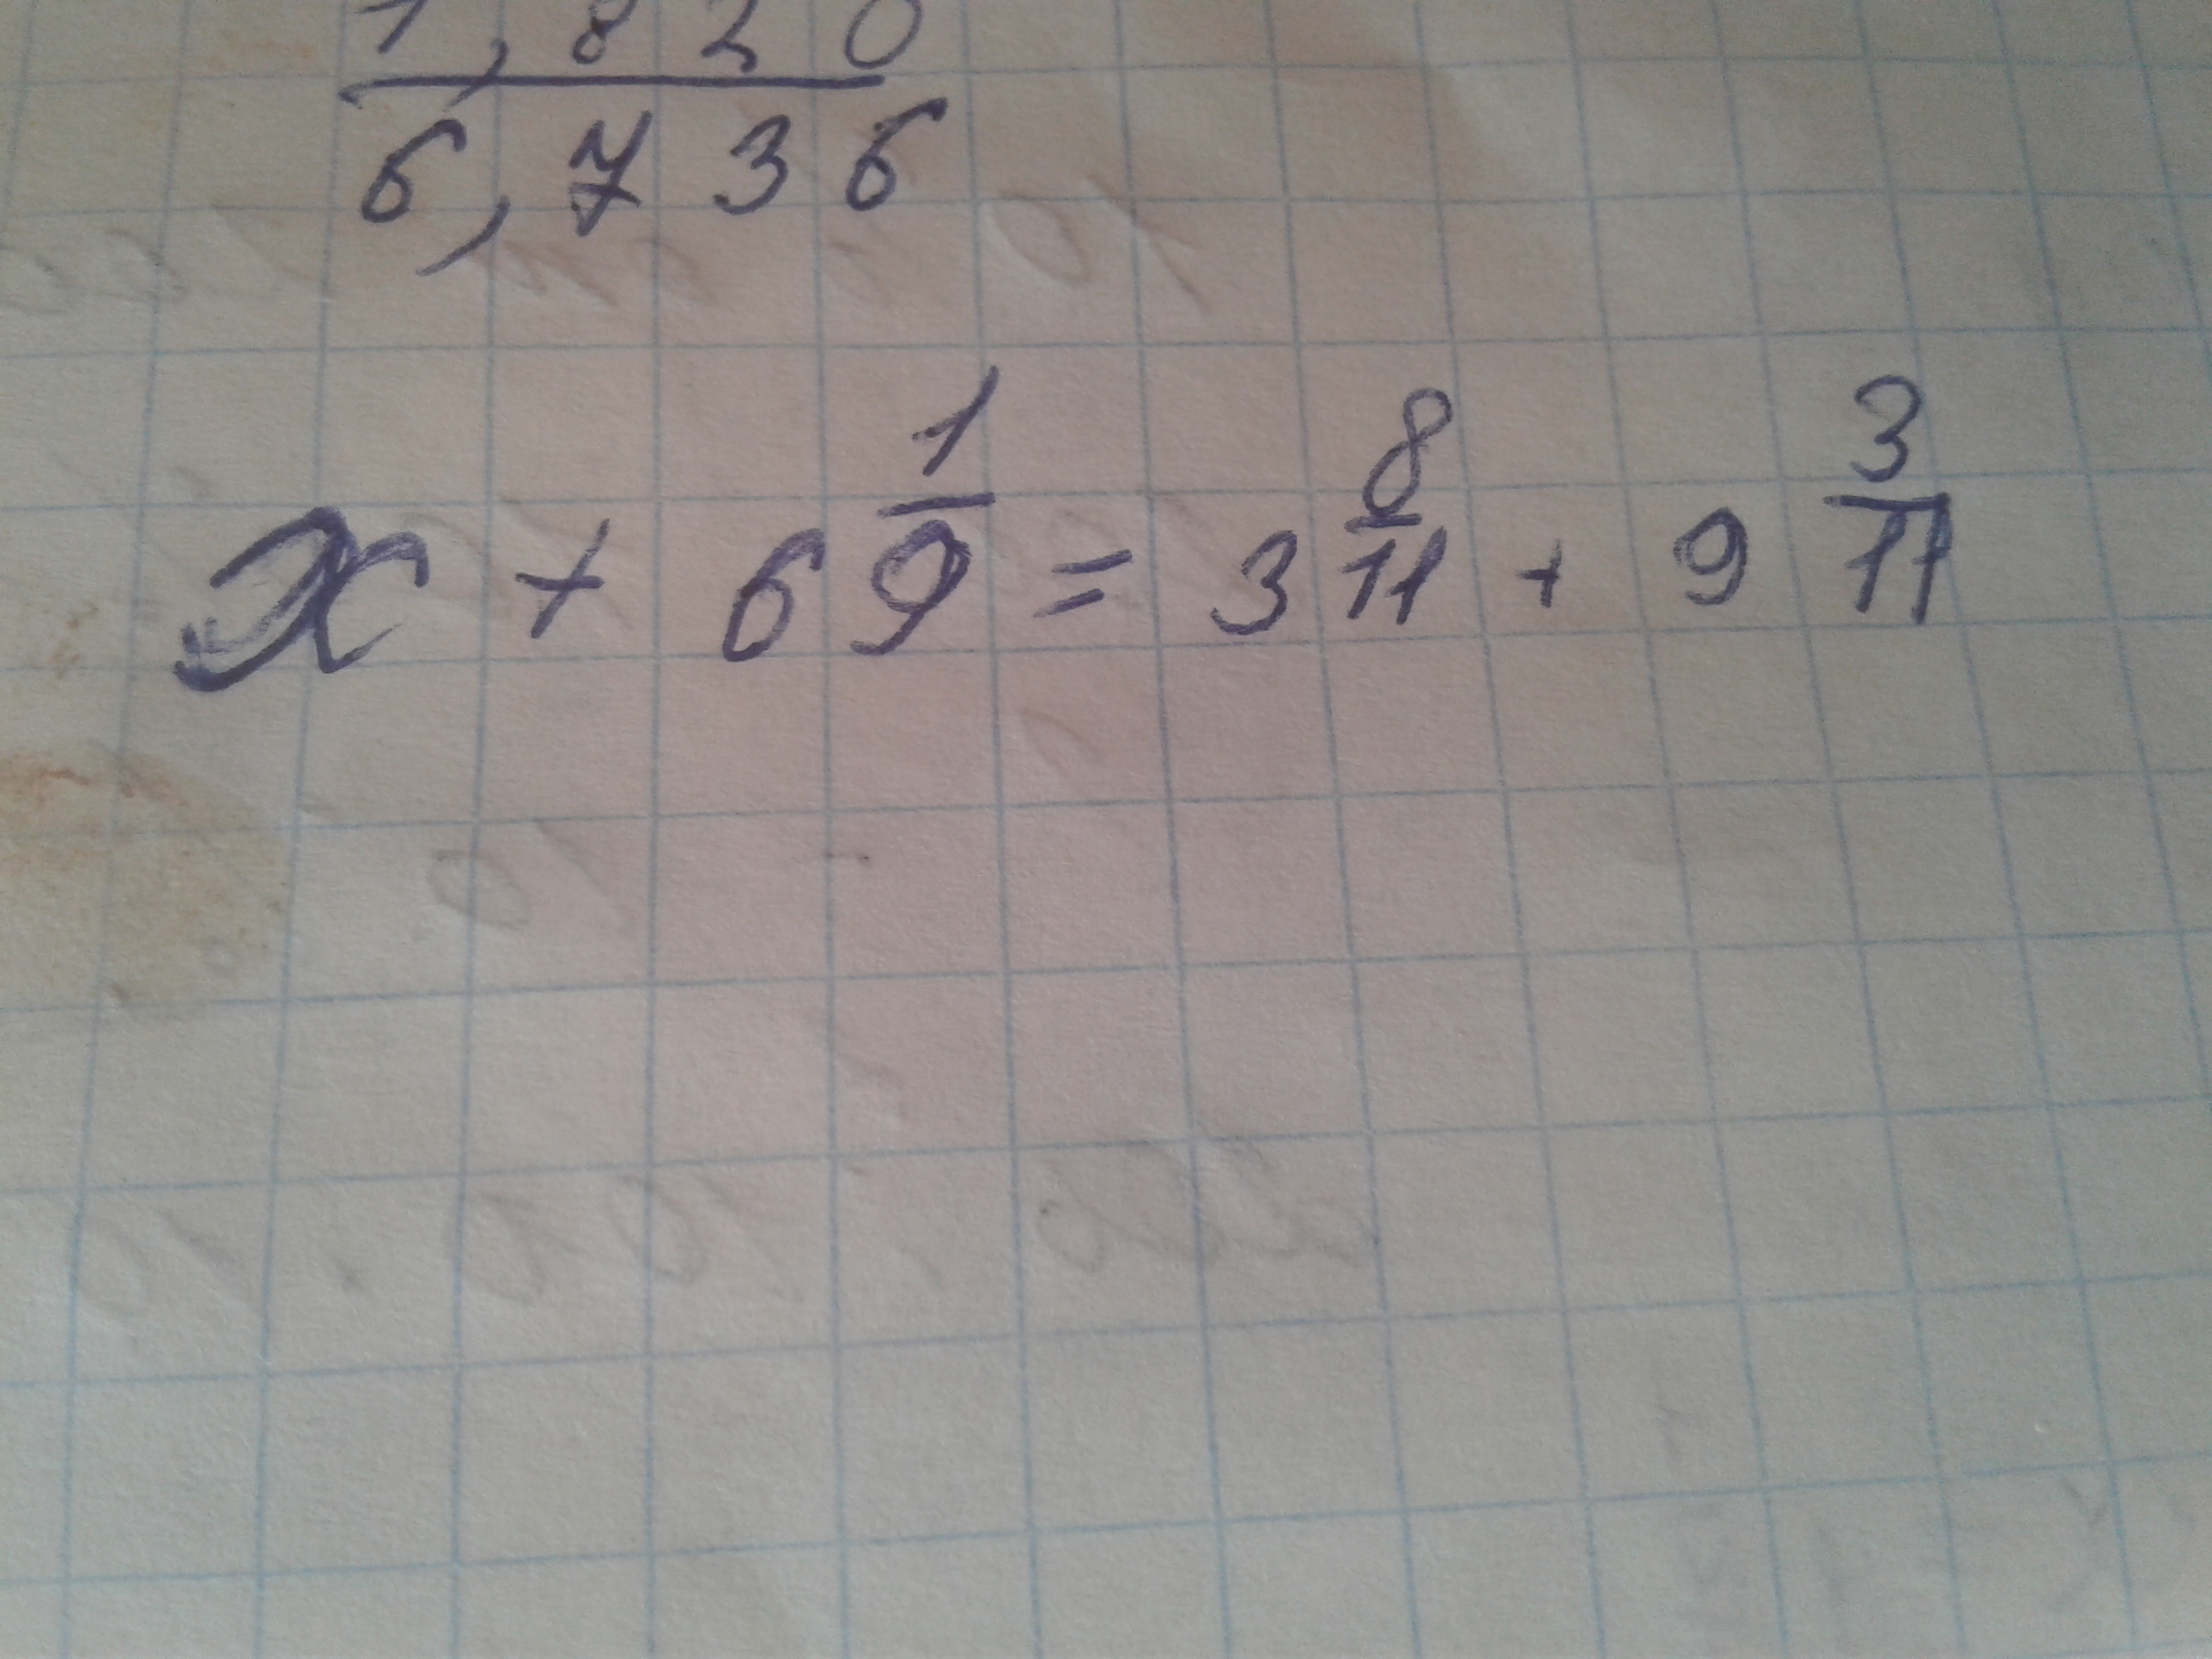 1,820
6,736
x + 6 1/9 = 3 8/11 + 9 3/11